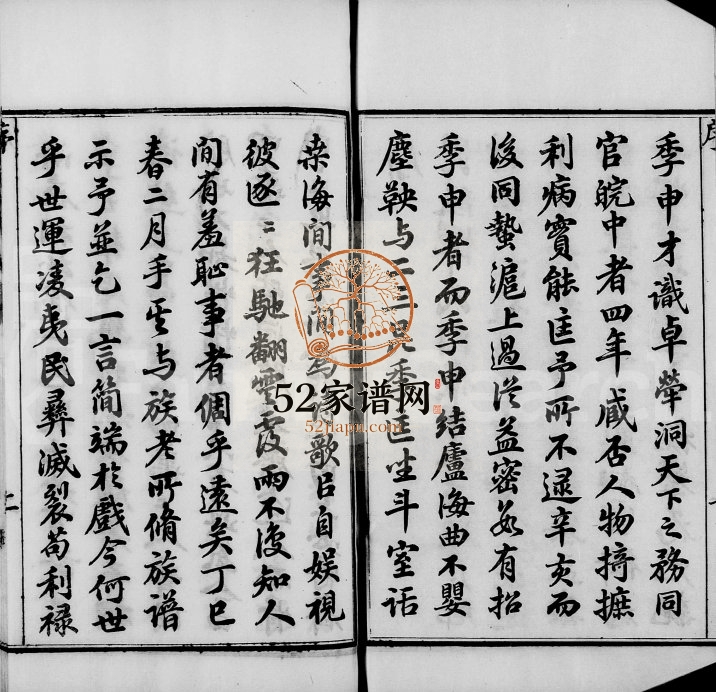 序
季申才識卓犖洞天下之務同
官皖中者四年臧否人物掎摭
利病實能匡予所不逮辛亥而
後同蟄滬上過從益密每有招
季申者而季申結廬海曲不嬰
塵鞅与二三兄季匡坐斗室話
一
桒海間 間 詩歌吕自娛視
彼逐〻狂馳翻雲覆雨不復知人
間有羞恥事者倜乎遠矣丁巳
春二月手其与族老所脩族譜
示予並乞一言簡端於戲今何世
乎世運凌夷民彝滅裂苟利祿
序
二
52家谱网
52jiapu.com